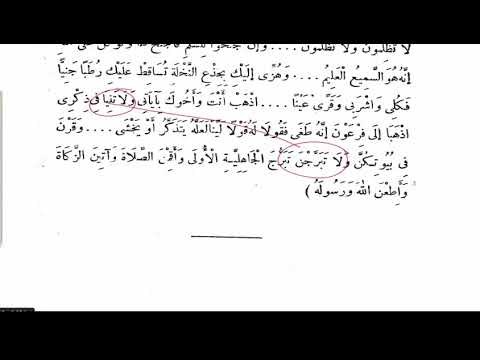 لا تَظْلِمُونَ وَلَا تُظْلَمُونَ .... وَإِنْ جَنَحُوا لِلسَّلْمِ فَاجْنَحْ لَهَا وَتَوَكَّلْ عَلَى اللهِ
إِنَّهُ هُوَ السَّمِيعُ الْعَلِيمُ .... وَهُزِّى إِلَيْكِ بِجِذْعِ النَّخْلَةِ تُسَاقِطْ عَلَيْكِ رُطَبًا جَنِيًّا
فَكُلِى وَاشْرَبِى وَقَرِّى عَيْنًا .... اذْهَبْ أَنْتَ وَأَخُوكَ بِآيَاتِى وَلَا تَنِيَا فِى ذِكْرِى
اذْهَبَا إِلَى فِرْعَوْنَ إِنَّهُ طَغَى فَقُولَا لَهُ قَوْلًا لَيِّنًا لَعَلَّهُ يَتَذَكَّرُ أَوْ يَخْشَى .... وَقَرْنَ
فِى بُيُوتِكُنَّ وَلَا تَبَرَّجْنَ تَبَرُّجَ الْجَاهِلِيَّةِ الْأُولَى وَأَقِمْنَ الصَّلَاةَ وَآتِينَ الزَّكَاةَ
وَأَطِعْنَ اللهَ وَرَسُولَهُ )